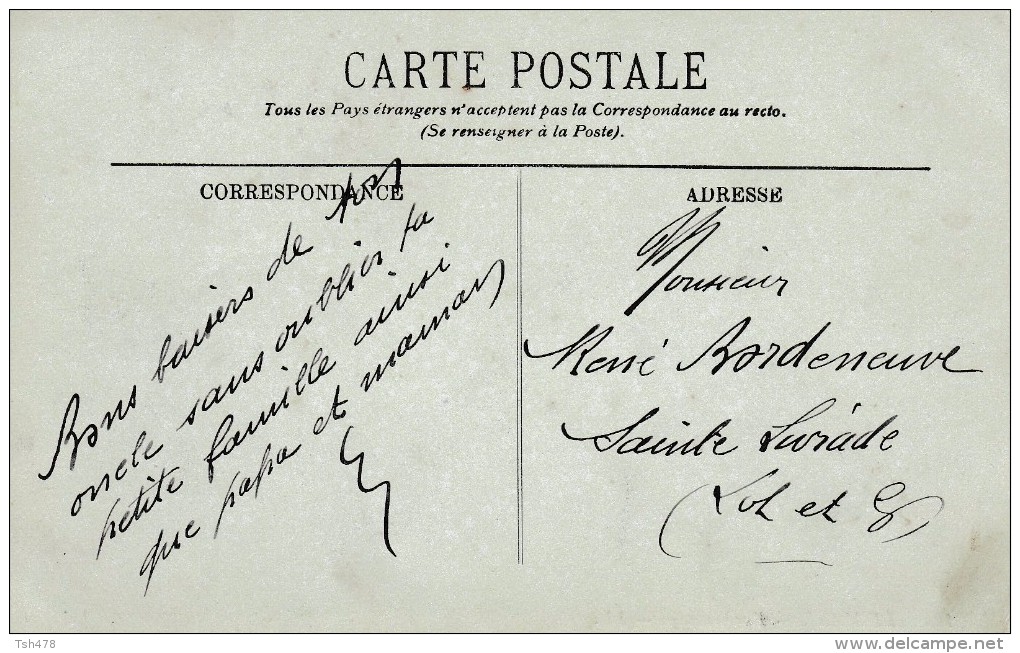 CARTE POSTALE
Tous les Pays étrangers n'acceptent pas la Correspondance au recto.
(Se renseigner à la Poste).
CORRESPONDANCE
Bons baisers de ton
oncle sans oublier ta
petite famille ainsi
que papa et maman
ADRESSE
Monsieur
René Bordeneuve
Sainte Livrade
(Lot et G)
Tsh478
www.delcampe.net